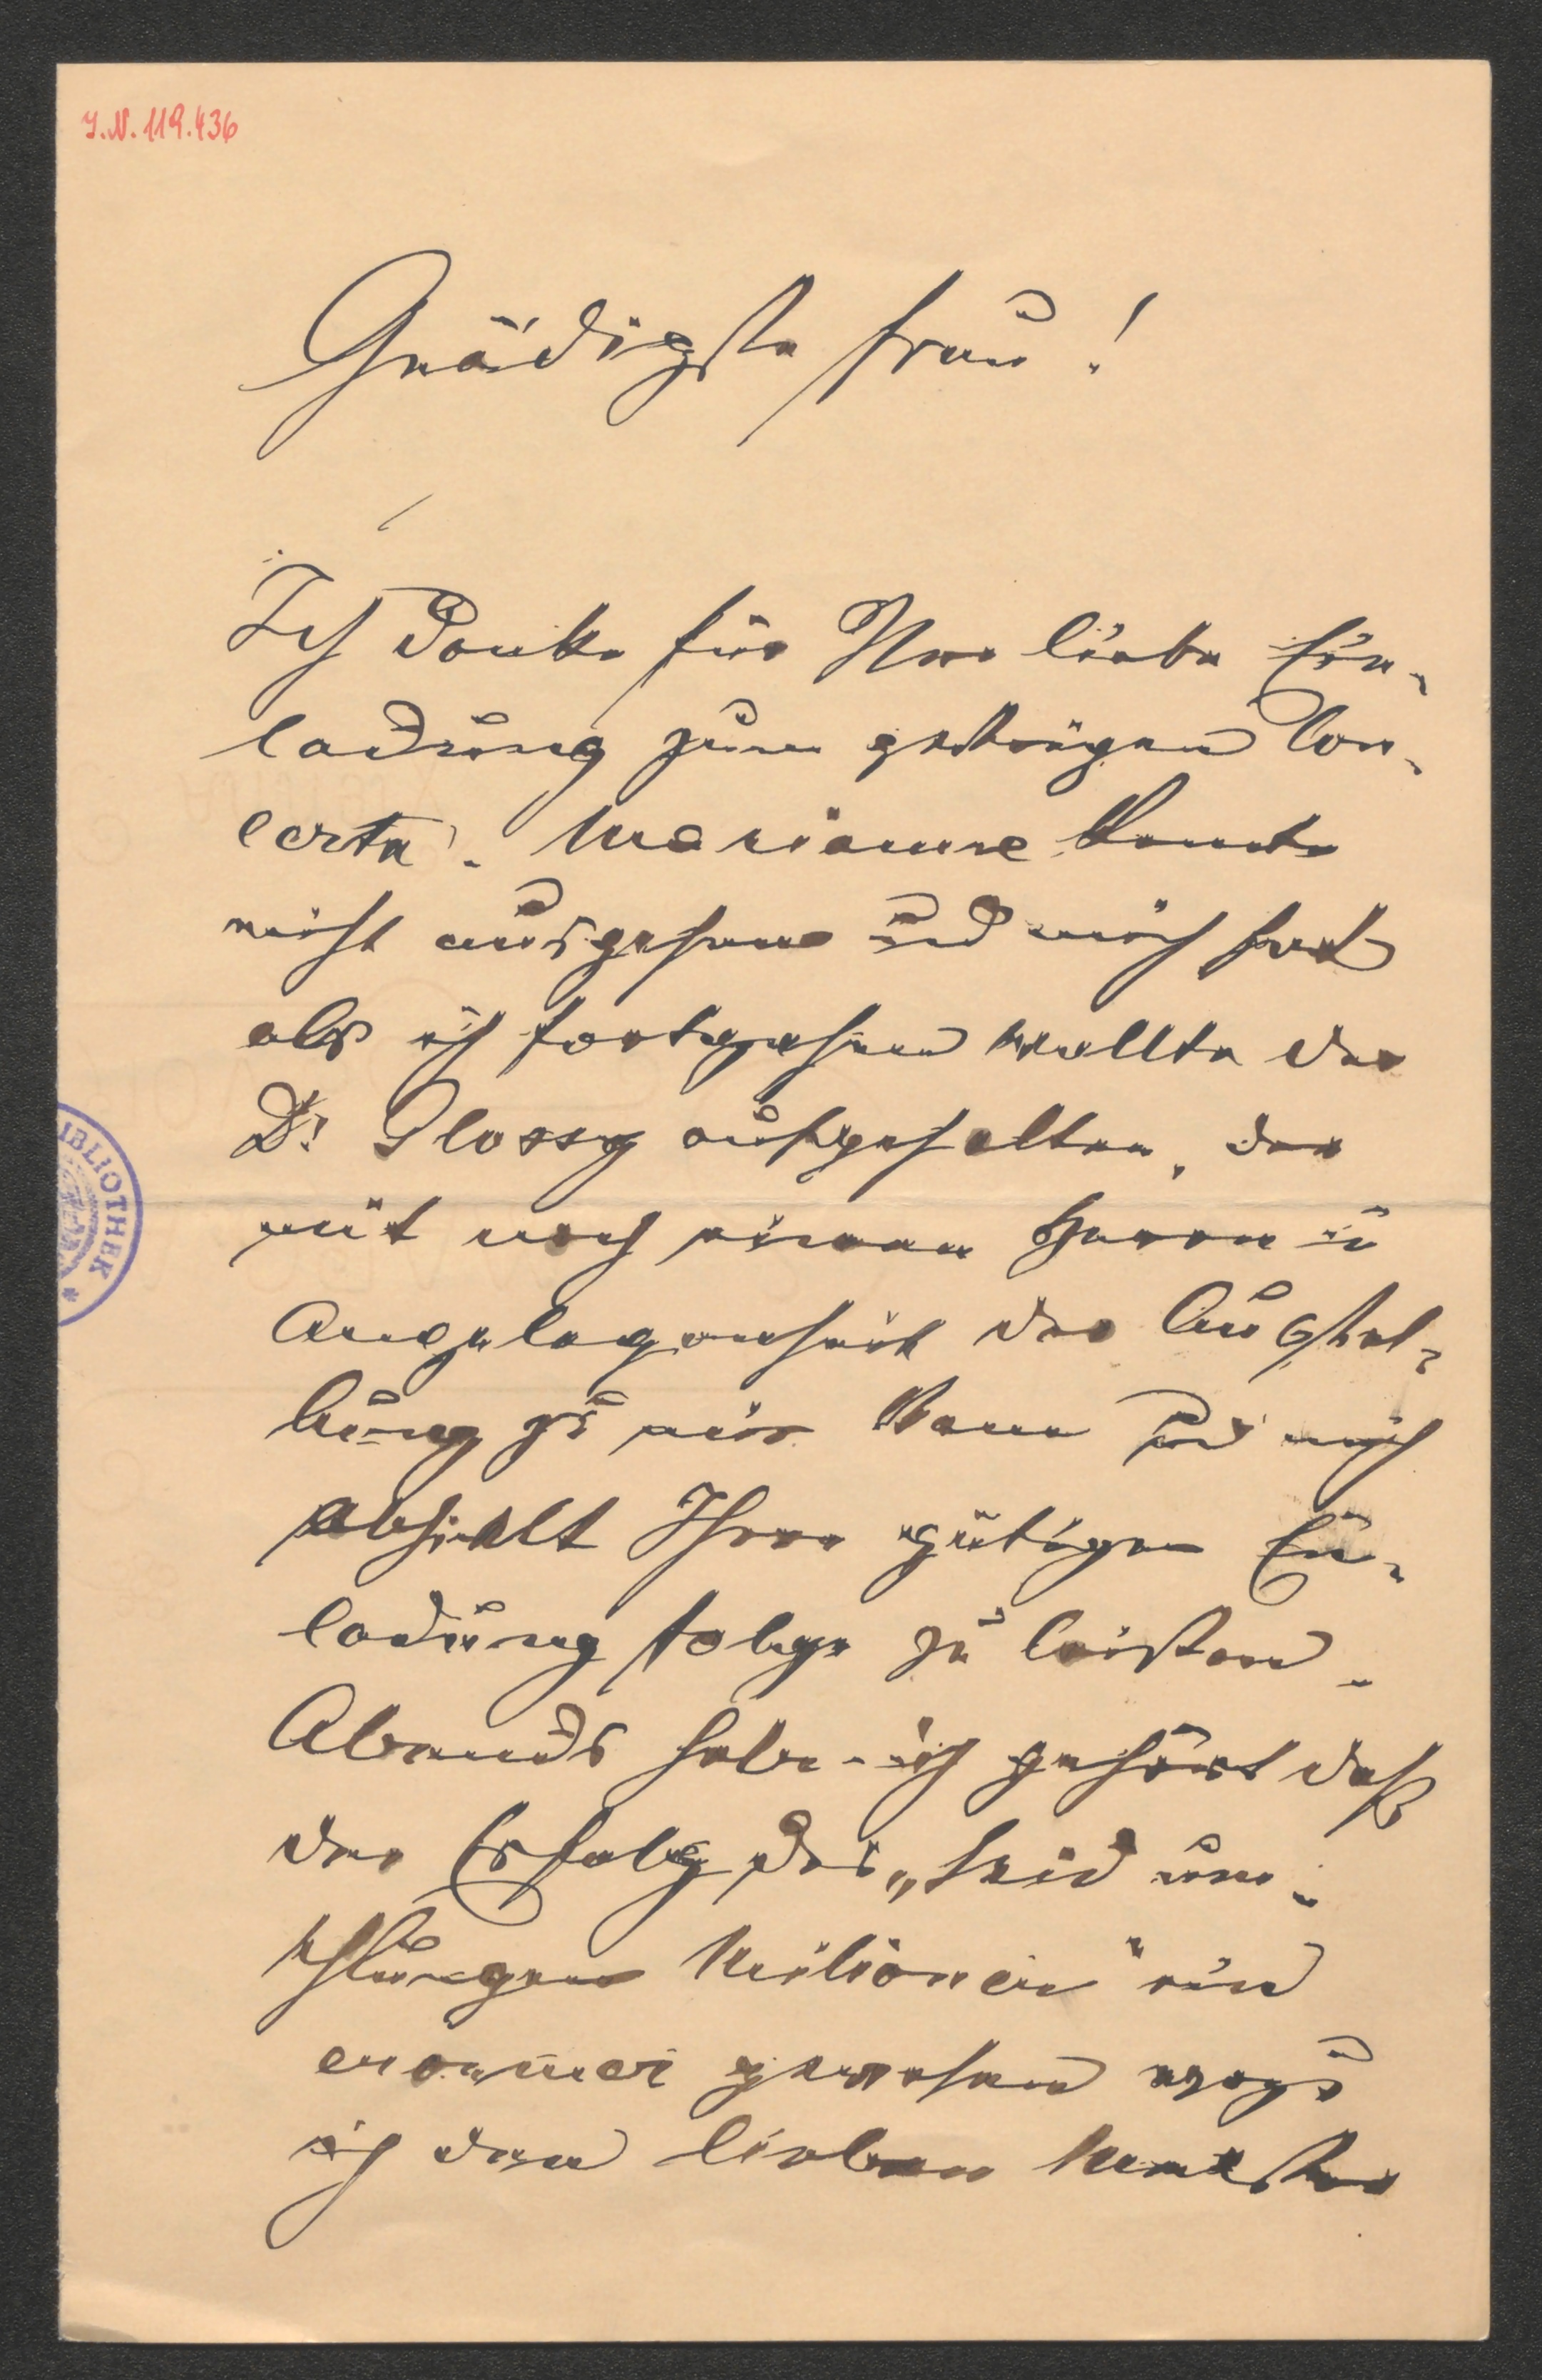 I.N. 119.436
Gnädigste Frau!
Ich danke für Ihre liebe Ein-
ladung zum gestrigen Con-
certe. Marianne konnte
nicht ausgehen und mich hat
als ich fortgehen wollte der
Dr. Glossy aufgehalten, der
mit noch einem Herrn in
Angelegenheit der Ausstel-
lung zu mir kam und mich
abhielt Ihrer gütigen Ein-
ladung folge zu leisten.
Abends habe ich gehört daß
der Erfolg des „Seid um-
schlungen Milionen" ein
enormer gewesen wozu
ich dem lieben Meister
IBLIOTHEK